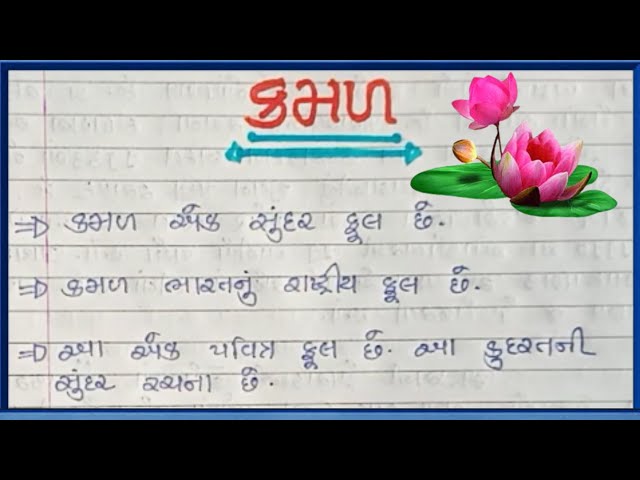 કમળ
⇒ કમળ એક સુંદર ફૂલ છે.
⇒ કમળ ભારતનું રાષ્ટ્રીય ફૂલ છે.
⇒ આ એક પવિત્ર ફૂલ છે. આ કુદરતની
સુંદર રચના છે.